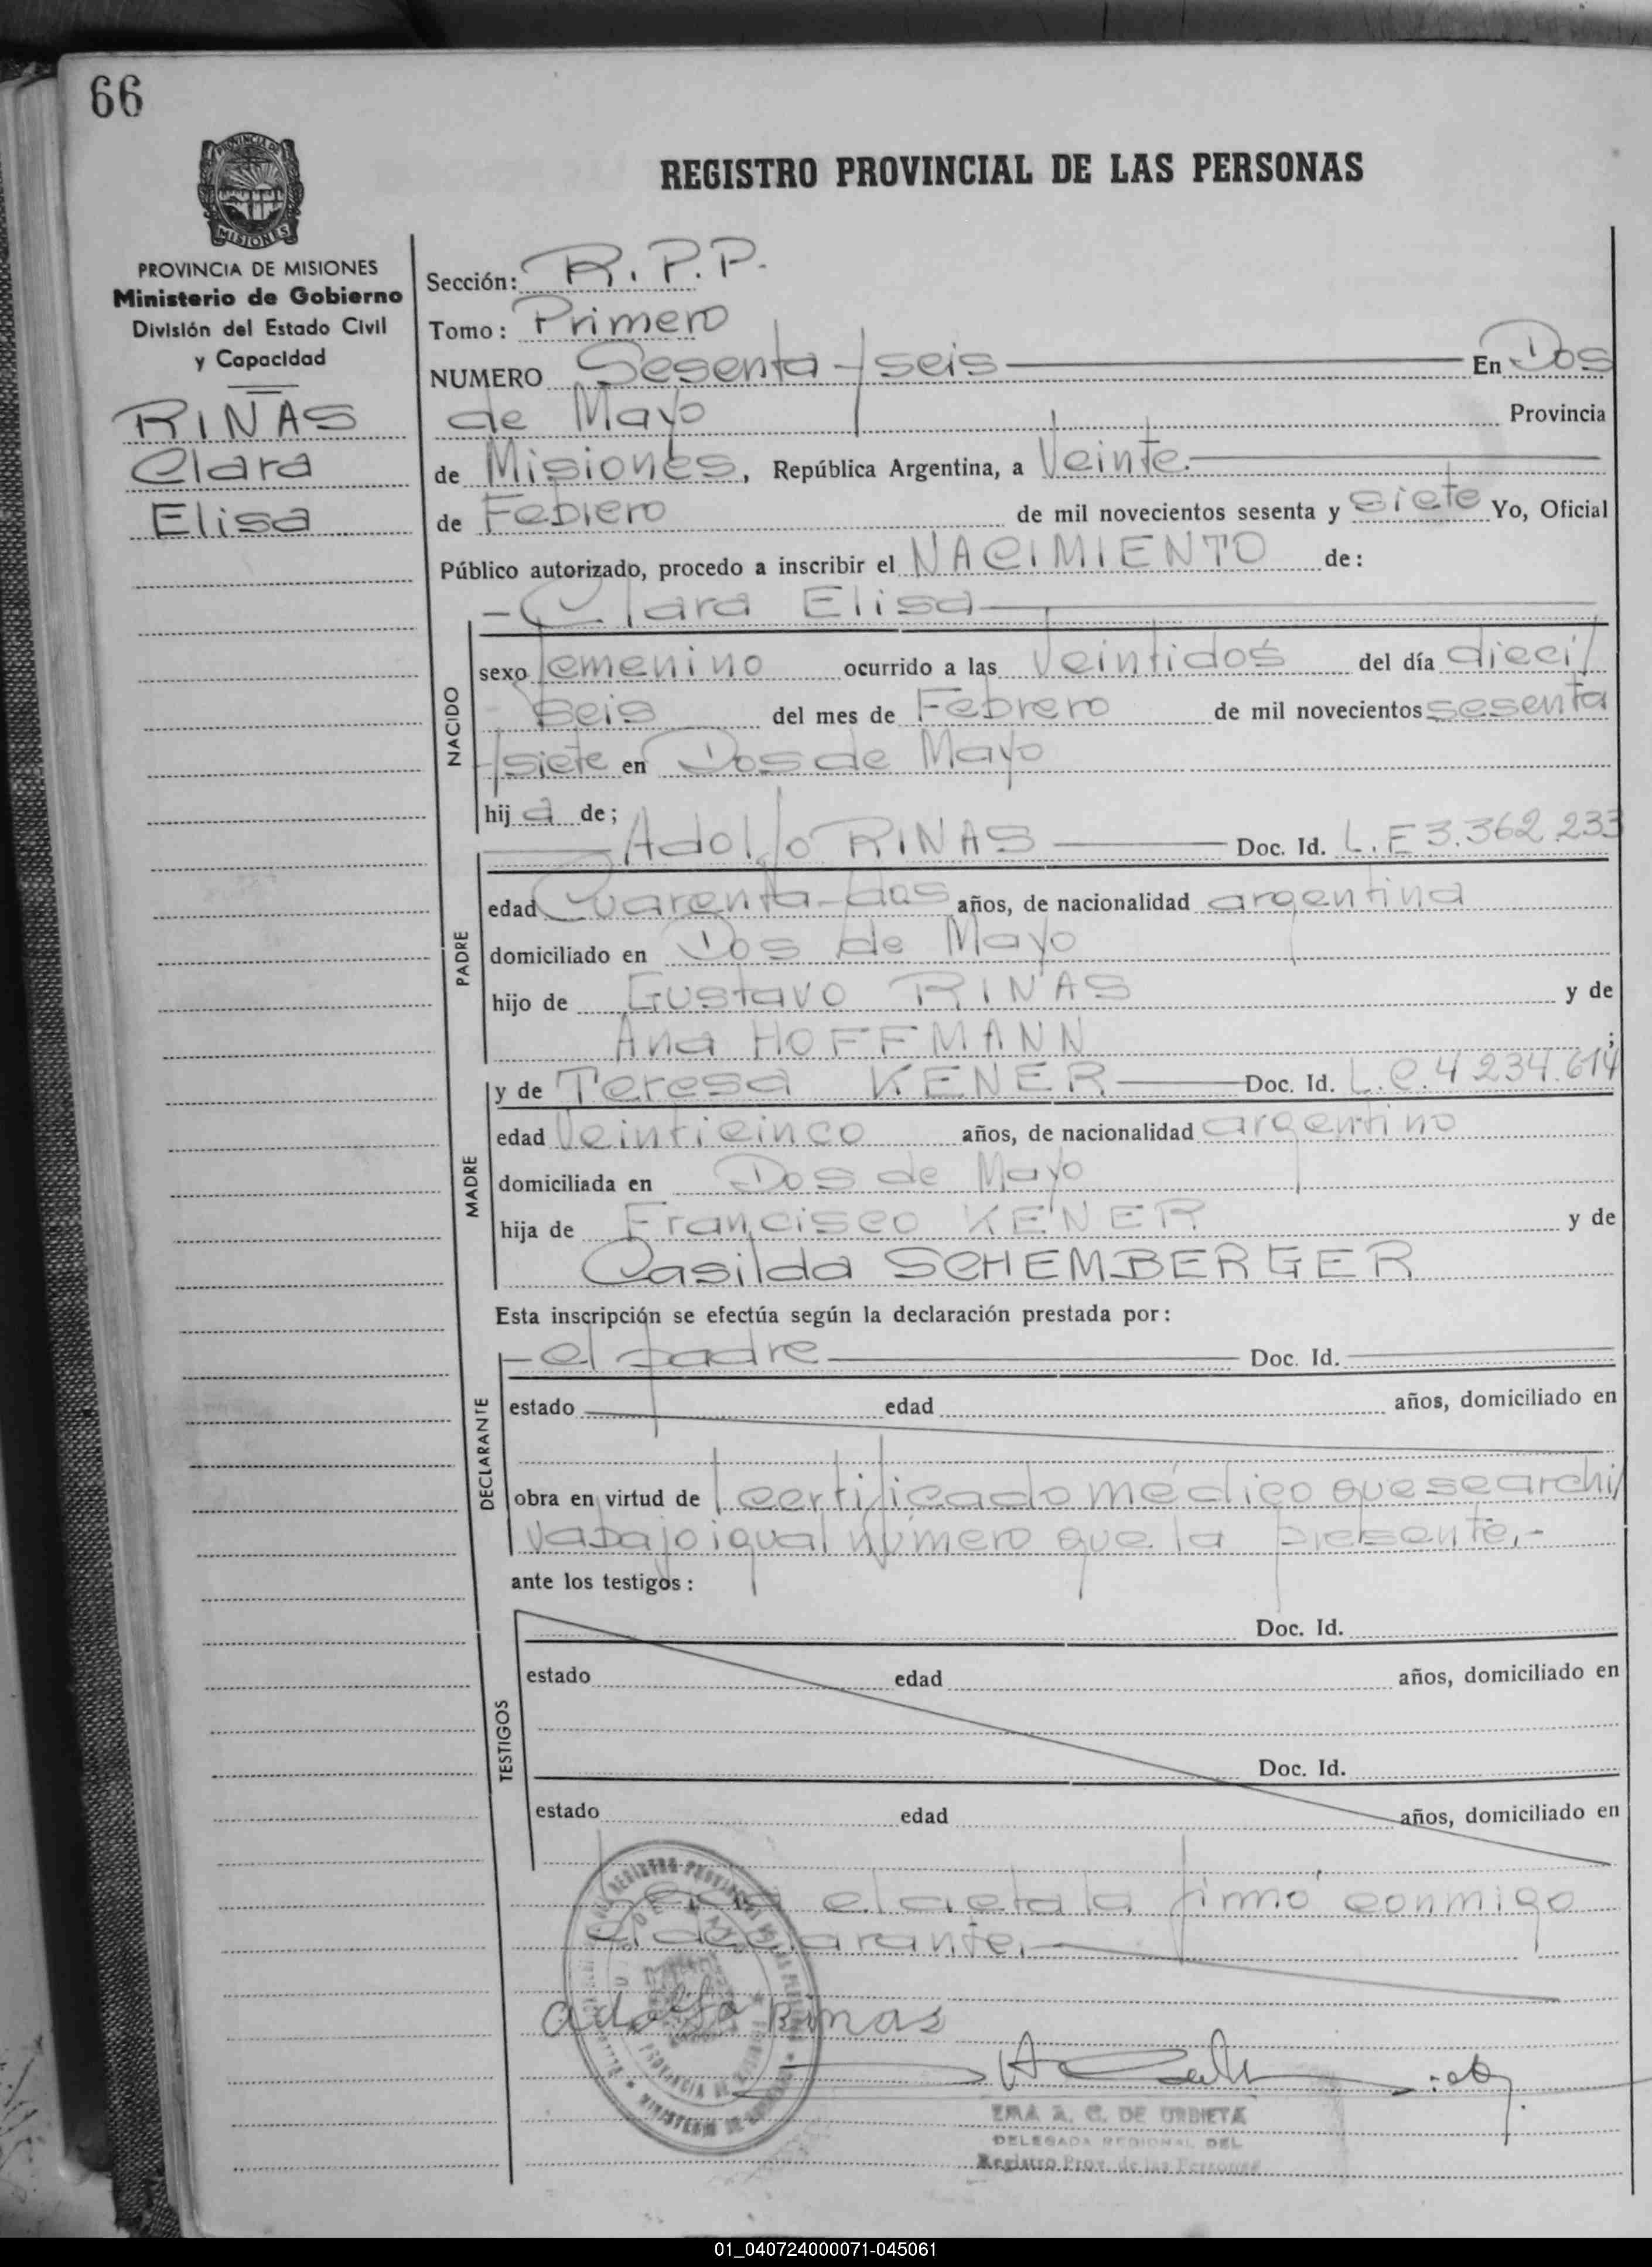 66
PROVINCIA DE
MISIONES
REGISTRO PROVINCIAL DE LAS PERSONAS
PROVINCIA DE MISIONES
Ministerio de Gobierno
División del Estado Civil
y Capacidad
RINAS
Clara
Elisa
Sección: R.P.P.
Tomo: Primero
NUMERO Sesenta y seis En Dos
de Mayo Provincia
de Misiones, República Argentina, a Veinte.
de Febrero de mil novecientos sesenta y siete Yo, Oficial
Público autorizado, procedo a inscribir el NACIMIENTO de:
- Clara Elisa
NACIDO
sexo femenino ocurrido a las Veintidos del día dieci/
seis del mes de Febrero de mil novecientos sesenta
y siete en Dos de Mayo
hij a de;
Adolfo RINAS Doc. Id. L.E 3.362.233
PADRE
edad Cuarenta-dos años, de nacionalidad argentina
domiciliado en Dos de Mayo
hijo de Gustavo RINAS y de
Ana HOFFMANN ;
y de Teresa KENER Doc. Id. L.C.4 234.614
MADRE
edad Veinticinco años, de nacionalidad argentino
domiciliada en Dos de Mayo
hija de Francisco KENER y de
Casilda SCHEMBERGER
Esta inscripción se efectúa según la declaración prestada por:
DECLARANTE
- el padre Doc. Id.
estado edad años, domiciliado en
obra en virtud de certificado médico que se archi/
va bajo igual número que la presente.-
ante los testigos:
TESTIGOS
Doc. Id.
estado edad años, domiciliado en
Doc. Id.
estado edad años, domiciliado en
el acta la firmó conmigo
el declarante.
adolfo Rinas
EMA A. G. DE URBIETA
DELEGADA REGIONAL DEL
Registro Prov. de las Personas
01_040724000071-045061